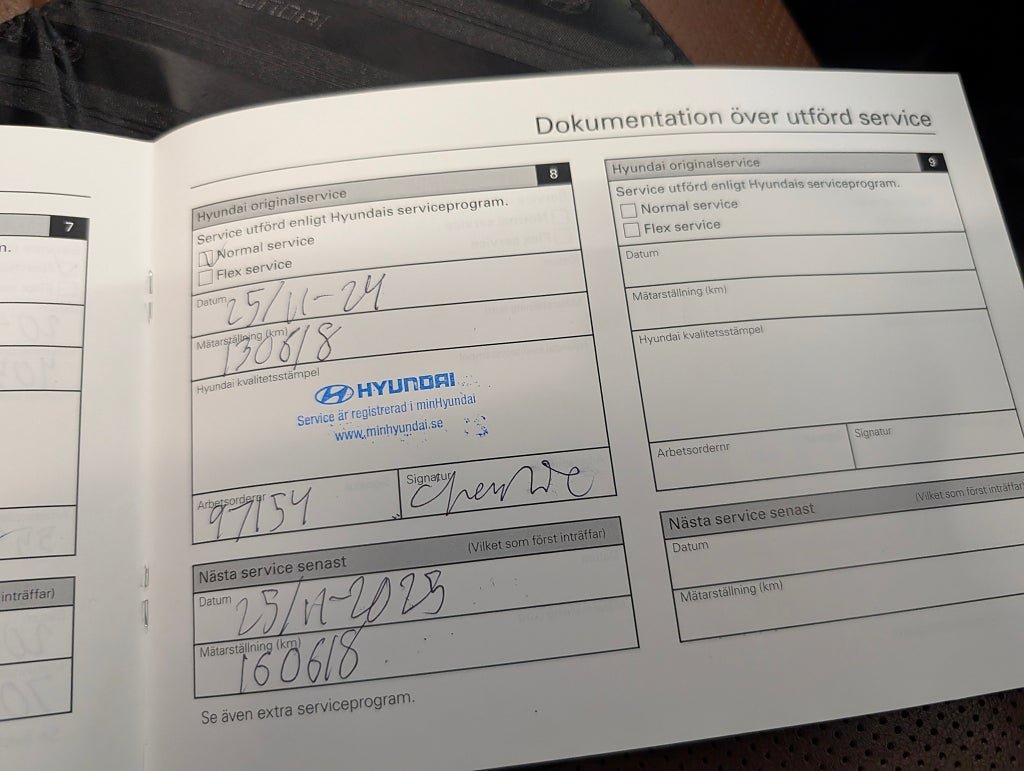 HYUNDAI
Dokumentation över utförd service
7
n.
inträffar)
Hyundai originalservice 8
Service utförd enligt Hyundais serviceprogram.
Normal service
Flex service
Datum 25/11-24
Mätarställning (km) 130618
Hyundai kvalitetsstämpel
HYUNDAI
Service är registrerad i minHyundai
www.minhyundai.se
Arbetsordernr 97154
Signatur
Nästa service senast (Vilket som först inträffar)
Datum 25/11-2025
Mätarställning (km) 160618
Se även extra serviceprogram.
Hyundai originalservice 9
Service utförd enligt Hyundais serviceprogram.
Normal service
Flex service
Datum
Mätarställning (km)
Hyundai kvalitetsstämpel
Arbetsordernr
Signatur
Nästa service senast (Vilket som först inträffar)
Datum
Mätarställning (km)